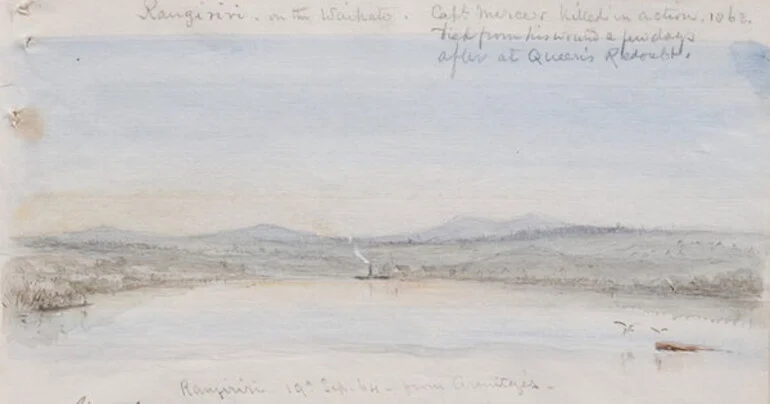 Rangiriri. on the Waikato. Capt. Mercer killed in action. 1863.
Died from his wound a few days
after at Queen's Redoubt.
Rangiriri. 19th Sep. 64 - from Armitage's -